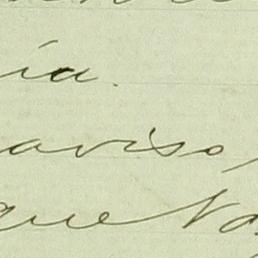 ia.
aviso,
que Vo